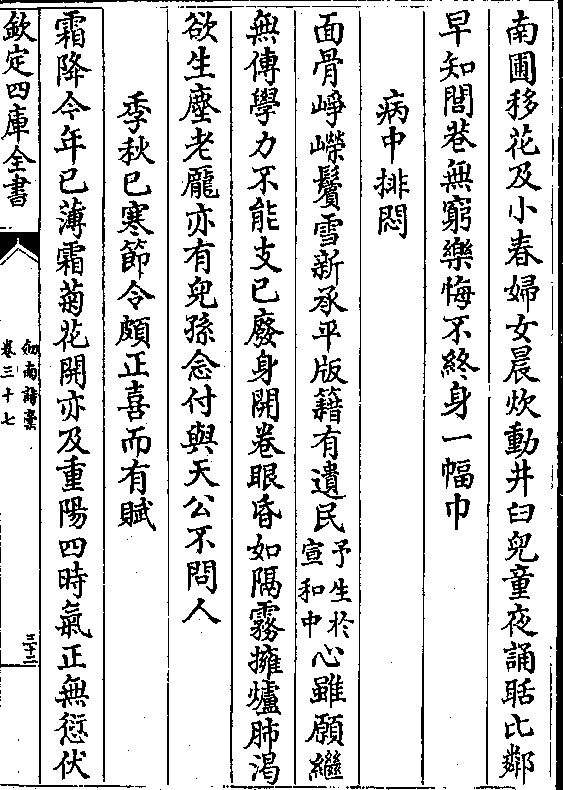 南圃移花及小春婦女晨炊動井臼兒童夜誦聒比鄰
早知閭巷無窮樂悔不終身一幅巾
病中排悶
面骨崢嶸鬢雪新承平版籍有遺民予生於宣和中心雖願繼
無傳學力不能支已廢身開卷眼昏如隔霧擁爐肺渴
欲生塵老龎亦有兒孫念付與天公不問人
季秋已寒節令頗正喜而有賦
霜降今年已薄霜菊花開亦及重陽四時氣正無愆伏
欽定四庫全書
劔南詩稾
卷三十七
三十二